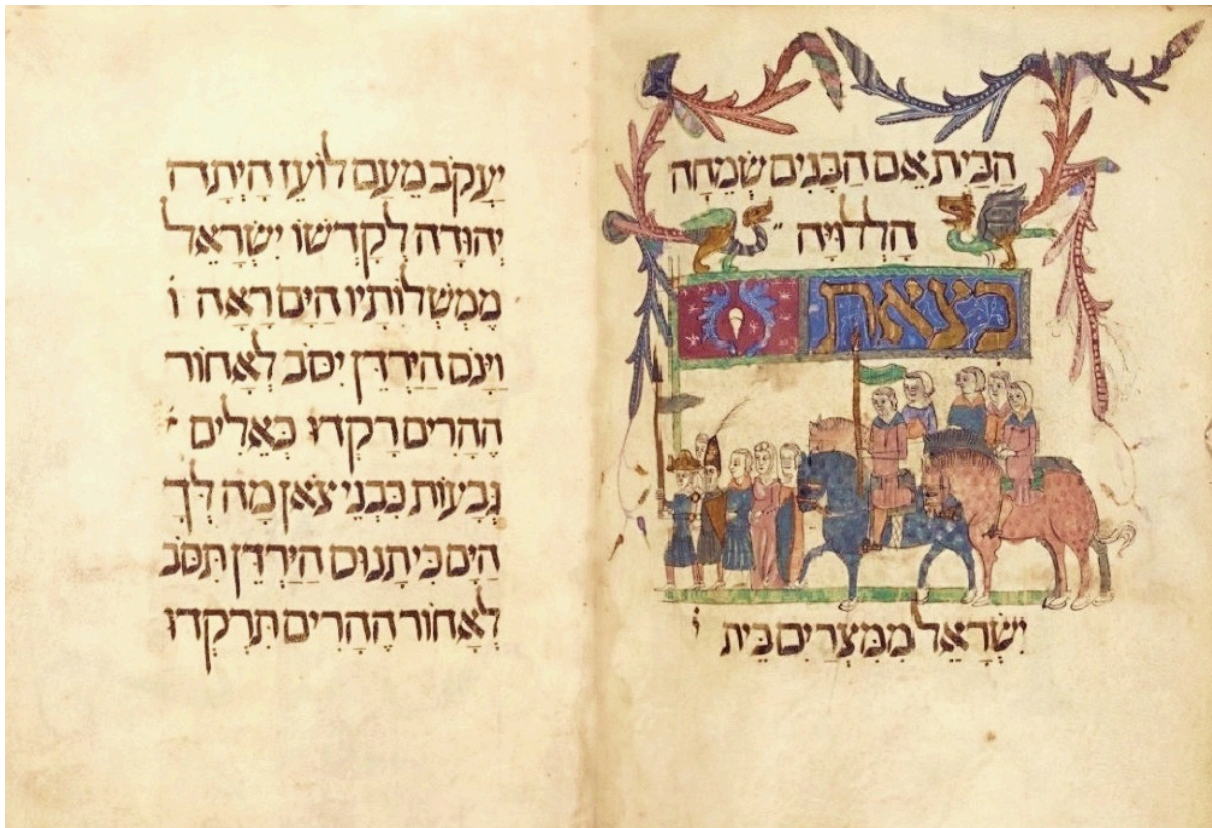 הַבַּיִת אֵם הַבָּנִים שְׂמֵחָה
הַלְלוּיָהּ
בצאת
יִשְׂרָאֵל מִמִּצְרַיִם בֵּית י
יַעֲקֹב מֵעַם לוֹעֵז הָיְתָה
יְהוּדָה לְקָדְשׁוֹ יִשְׂרָאֵל
מַמְשְׁלוֹתָיו הַיָּם רָאָה ו
וַיָּנֹס הַיַּרְדֵּן יִסֹּב לְאָחוֹר
הֶהָרִים רָקְדוּ כְּאֵלִים
גְּבָעוֹת כִּבְנֵי צֹאן מַה לְּךָ
הַיָּם כִּי תָנוּס הַיַּרְדֵּן תִּסֹּב
לְאָחוֹר הֶהָרִים תִּרְקְדוּ